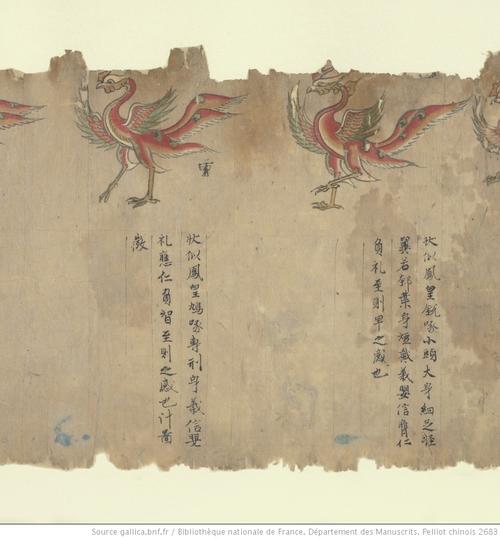 状似鳳皇銳啄小頭大身細足脛
翼若邪葉身短戴義嬰信膺仁
負礼至則旱之感也
状似鳳皇鳩啄專刑身義信嬰
礼應仁負智至則之感也汁啚
徵
Source gallica.bnf.fr / Bibliothèque nationale de France. Département des Manuscrits. Pelliot chinois 2683